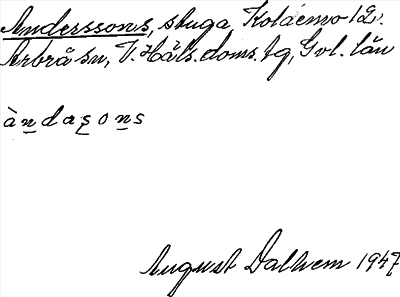 Anderssons, stuga
Arbrå sn, V. Häls. doms. tg, Gvl. län
àndasons
August Dalhem 1947